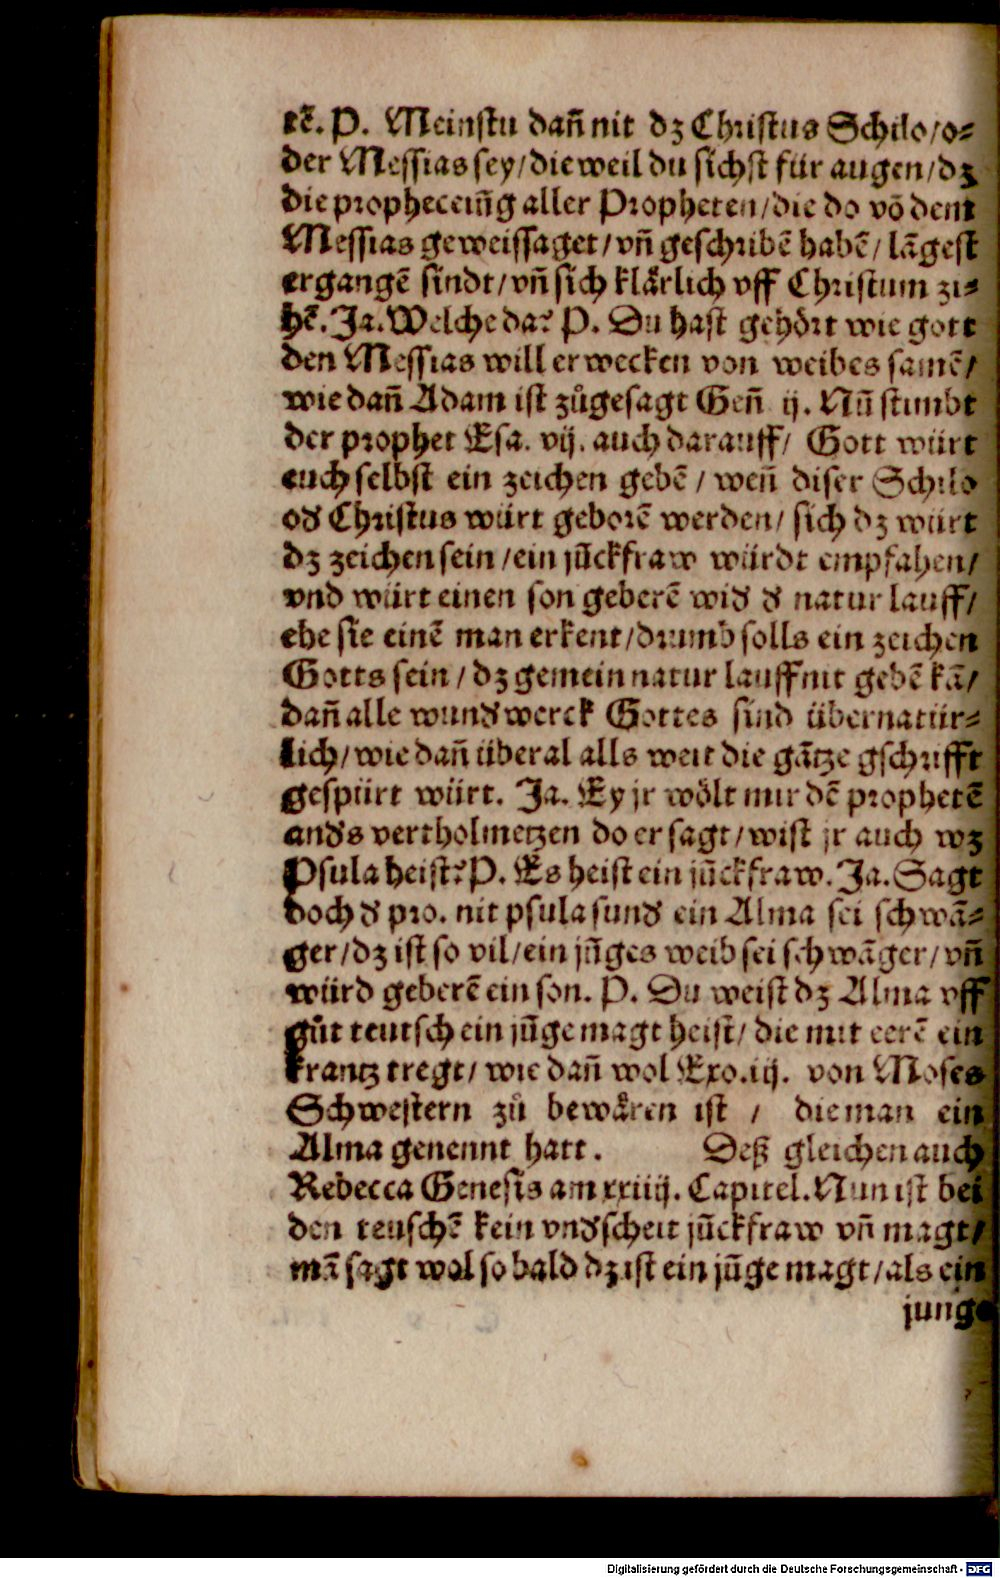 rc̃. P. Meinstu dañ nit dz Christus Schilo/o⸗
der Messias sey/die weil du sichst für augen/dz
die propheceiũg aller Propheten/die do võ dem
Messias geweissaget/vñ geschribẽ habẽ/lãgest
ergangẽ sindt/vñ sich klårlich vff Christum zi⸗
hẽ. Ja. Welche da? P. Du hast gehört wie gott
den Messias will erwecken von weibes samẽ/
wie dañ Adam ist zůgesagt Geñ ij. Nũ stimbt
der prophet Esa. vij. auch darauff/ Gott würt
euch selbst ein zeichen gebẽ/ weñ diser Schilo
oď Christus würt geborẽ werden/ sich dz würt
dz zeichen sein/ein jũckfraw würdt empfahen/
vnd würt einen son geberẽ wiď ď natur lauff/
ehe sie einẽ man erkent/drumb solls ein zeichen
Gotts sein/ dz gemein natur lauff nit gebẽ kã/
dañ alle wunďwerck Gottes sind übernatür⸗
lich/wie dañ überal alls weit die gãtze gschrifft
gespürt würt. Ja. Ey jr wölt mir dẽ prophetẽ
anďs vertholmetzen do er sagt/wist jr auch wz
Psula heist? P. Es heist ein jũckfraw. Ja. Sagt
doch ď pro. nit psula sunď ein Alma sei schwã⸗
ger/dz ist so vil/ein jũges weib sei schwãger/vñ
würd geberẽ ein son. P. Du weist dz Alma vff
gůt teutsch ein jũge magt heist/ die mit eerẽ ein
krantz tregt/ wie dañ wol Exo. iij. von Moses
Schwestern zů bewåren ist / die man ein
Alma genennt hatt. Deß gleichen auch
Rebecca Genesis am xxiiij. Capitel. Nun ist bei
den teuschẽ kein vnďscheit jũckfraw vñ magt/
mã sagt wol so bald dz ist ein jũge magt/als ein
junge
Digitalisierung gefördert durch die Deutsche Forschungsgemeinschaft - DFG